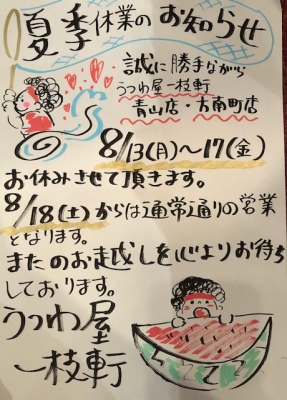 夏季休業のお知らせ
誠に勝手ながら
うつわ屋一枝軒
青山店・古南町店
8/13(月)～17(金)
お休みさせて頂きます。
8/18(土)からは通常通りの営業
となります。
またのお越しを心よりお待ち
しております。
うつわ屋
一枝軒